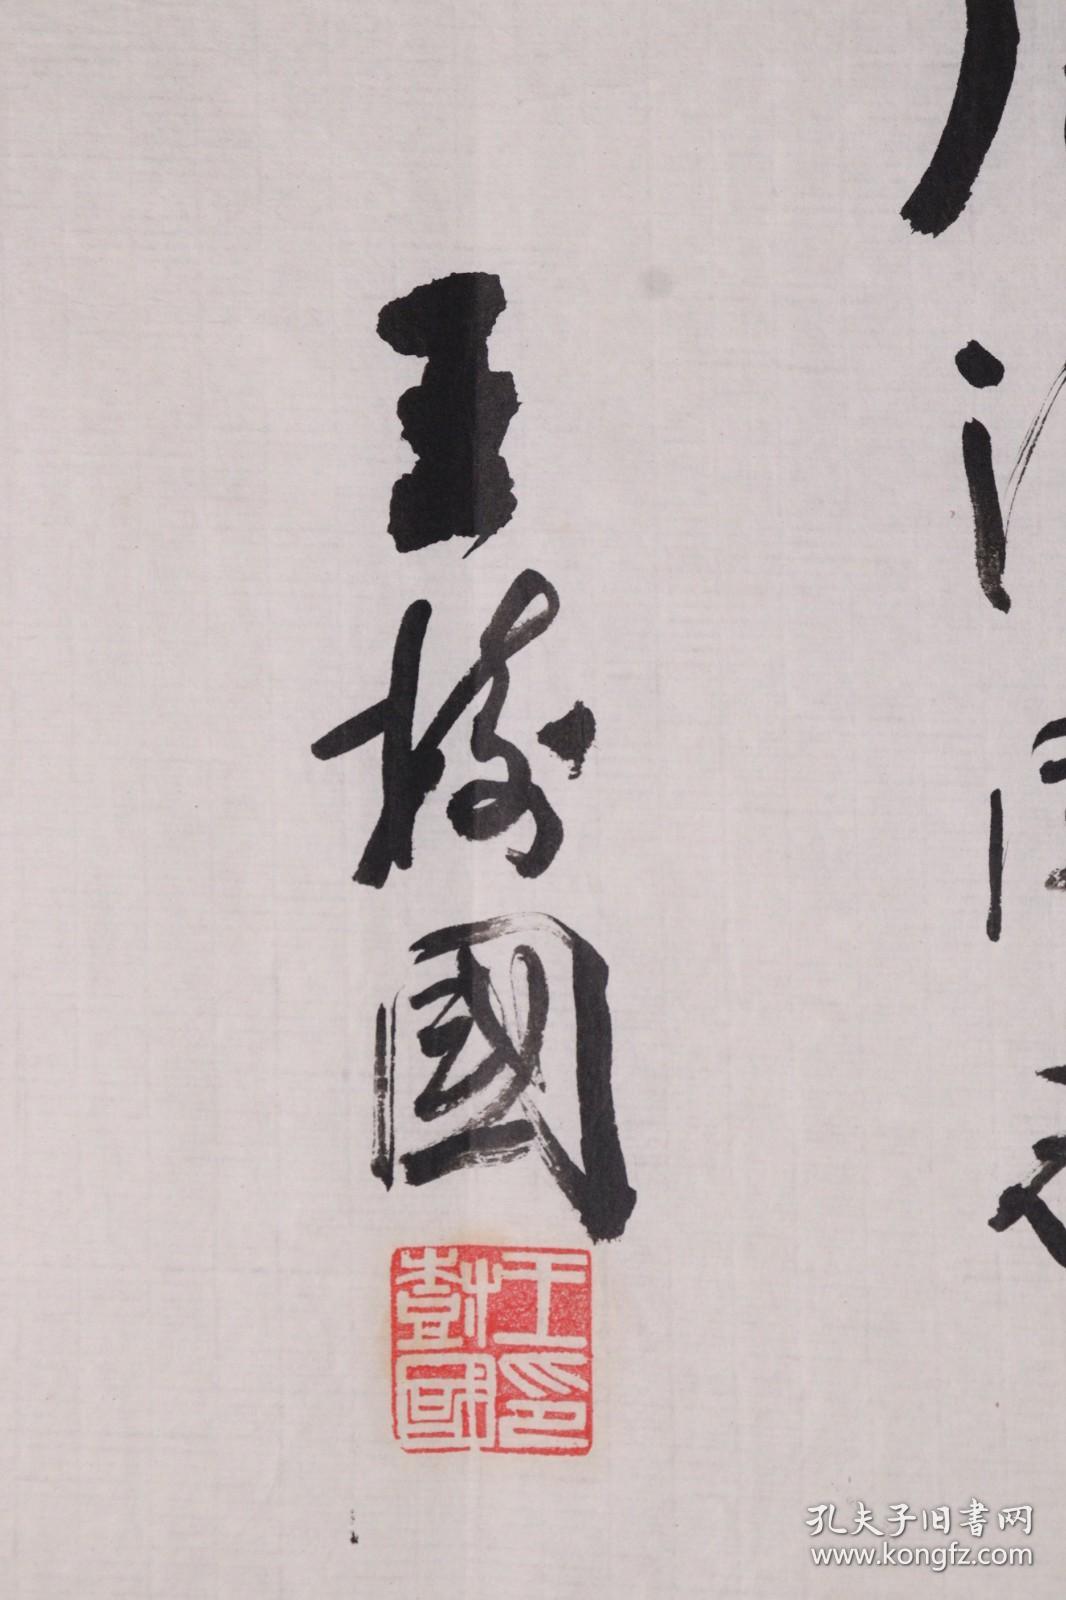 王樹國
王印
樹國
孔夫子旧書网
www.kongfz.com